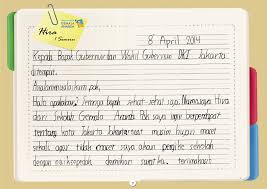 GEMALA ANANDA
Hira
1 Semeru
8 April 2014
Kepada Bapak Gubernur dan Wakil Gubernur DKI Jakarta
ditempat.
Assalammualaikum pak,
Halo apakabar? Semoga bapak sehat sehat aja. Namasaya Hira
dari Sekolah Gemala Ananda. Pak saya ingin berpendapat
tentang kota Jakarta. Jakarta macet musim hujan macet
sekali. agar tidak macet saya akan pergi ke sekolah
dengan naik sepeda. demikian surat ku. terimakasih